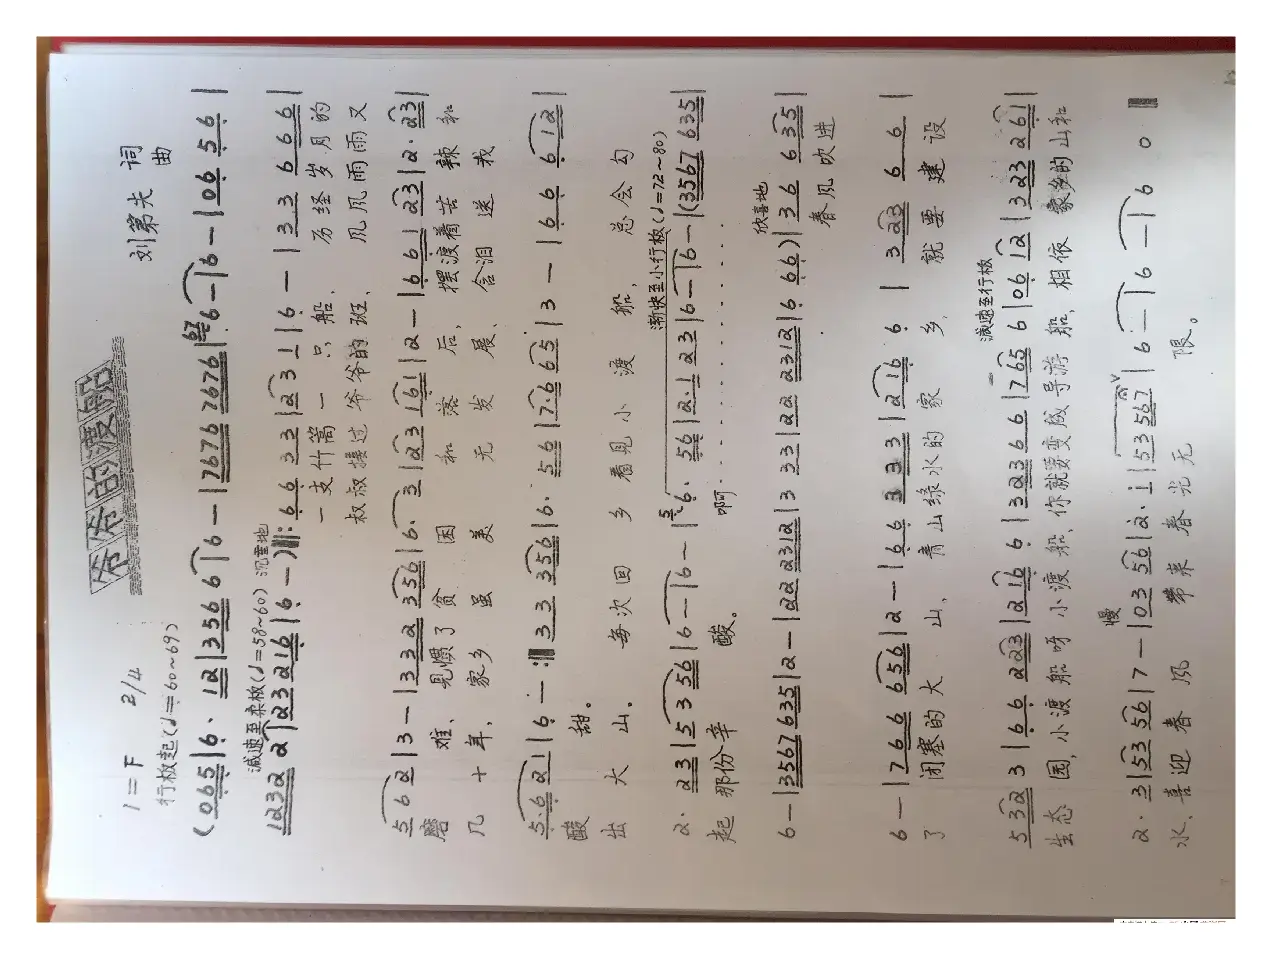 爷爷的渡船
刘第夫 词 曲
1=F 2/4
行板起(♩=60~69)
(065|6· 12|3566 6|6 — |76767676|6 — |6 — |10656|
减速至柔板(♩=58~60) 沉重地
1232 2|23216|6 — )‖:66 33|231|6 — |33666|
一支竹篙一只船、 历经岁月的
叔叔接过爷爷的班、 风风雨雨又
562|3 — |332356|6· 3|23161|2 — |66123|2· 23|
磨难、 见惯了贫困和落后, 摆渡着苦辣和
几十年, 家乡虽美无发展、 含泪送我
5·621|6 — :‖33356|6· 56|7·665|3 — |66612|
酸甜。
出大山。 每次回乡看见小渡船, 总会勾
渐快至小行板(♩=72~80)
2· 23|53556|6 — |6 — |6· 56|2·123|6 — |6 — |(3567635|
起那份辛酸。 啊
欣喜地
6 — |3567635|2 — |222312|3 33|222312|6 66)|36635|
春风吹进
6 — |766656|2 — |6633|2166|32366|
了闭塞的大山、 青山绿水的家乡, 就要建设
减速至行板
5323|66223|2166|32366|7656|0612|323261|
生态园,小渡船呀小渡船,你就要变成导游船, 相依家乡的山和
慢
2· 3|5356|7 — |0356|2· 1|53567|6 — |6 — |6 0‖
水、喜迎春风带来春光无限。